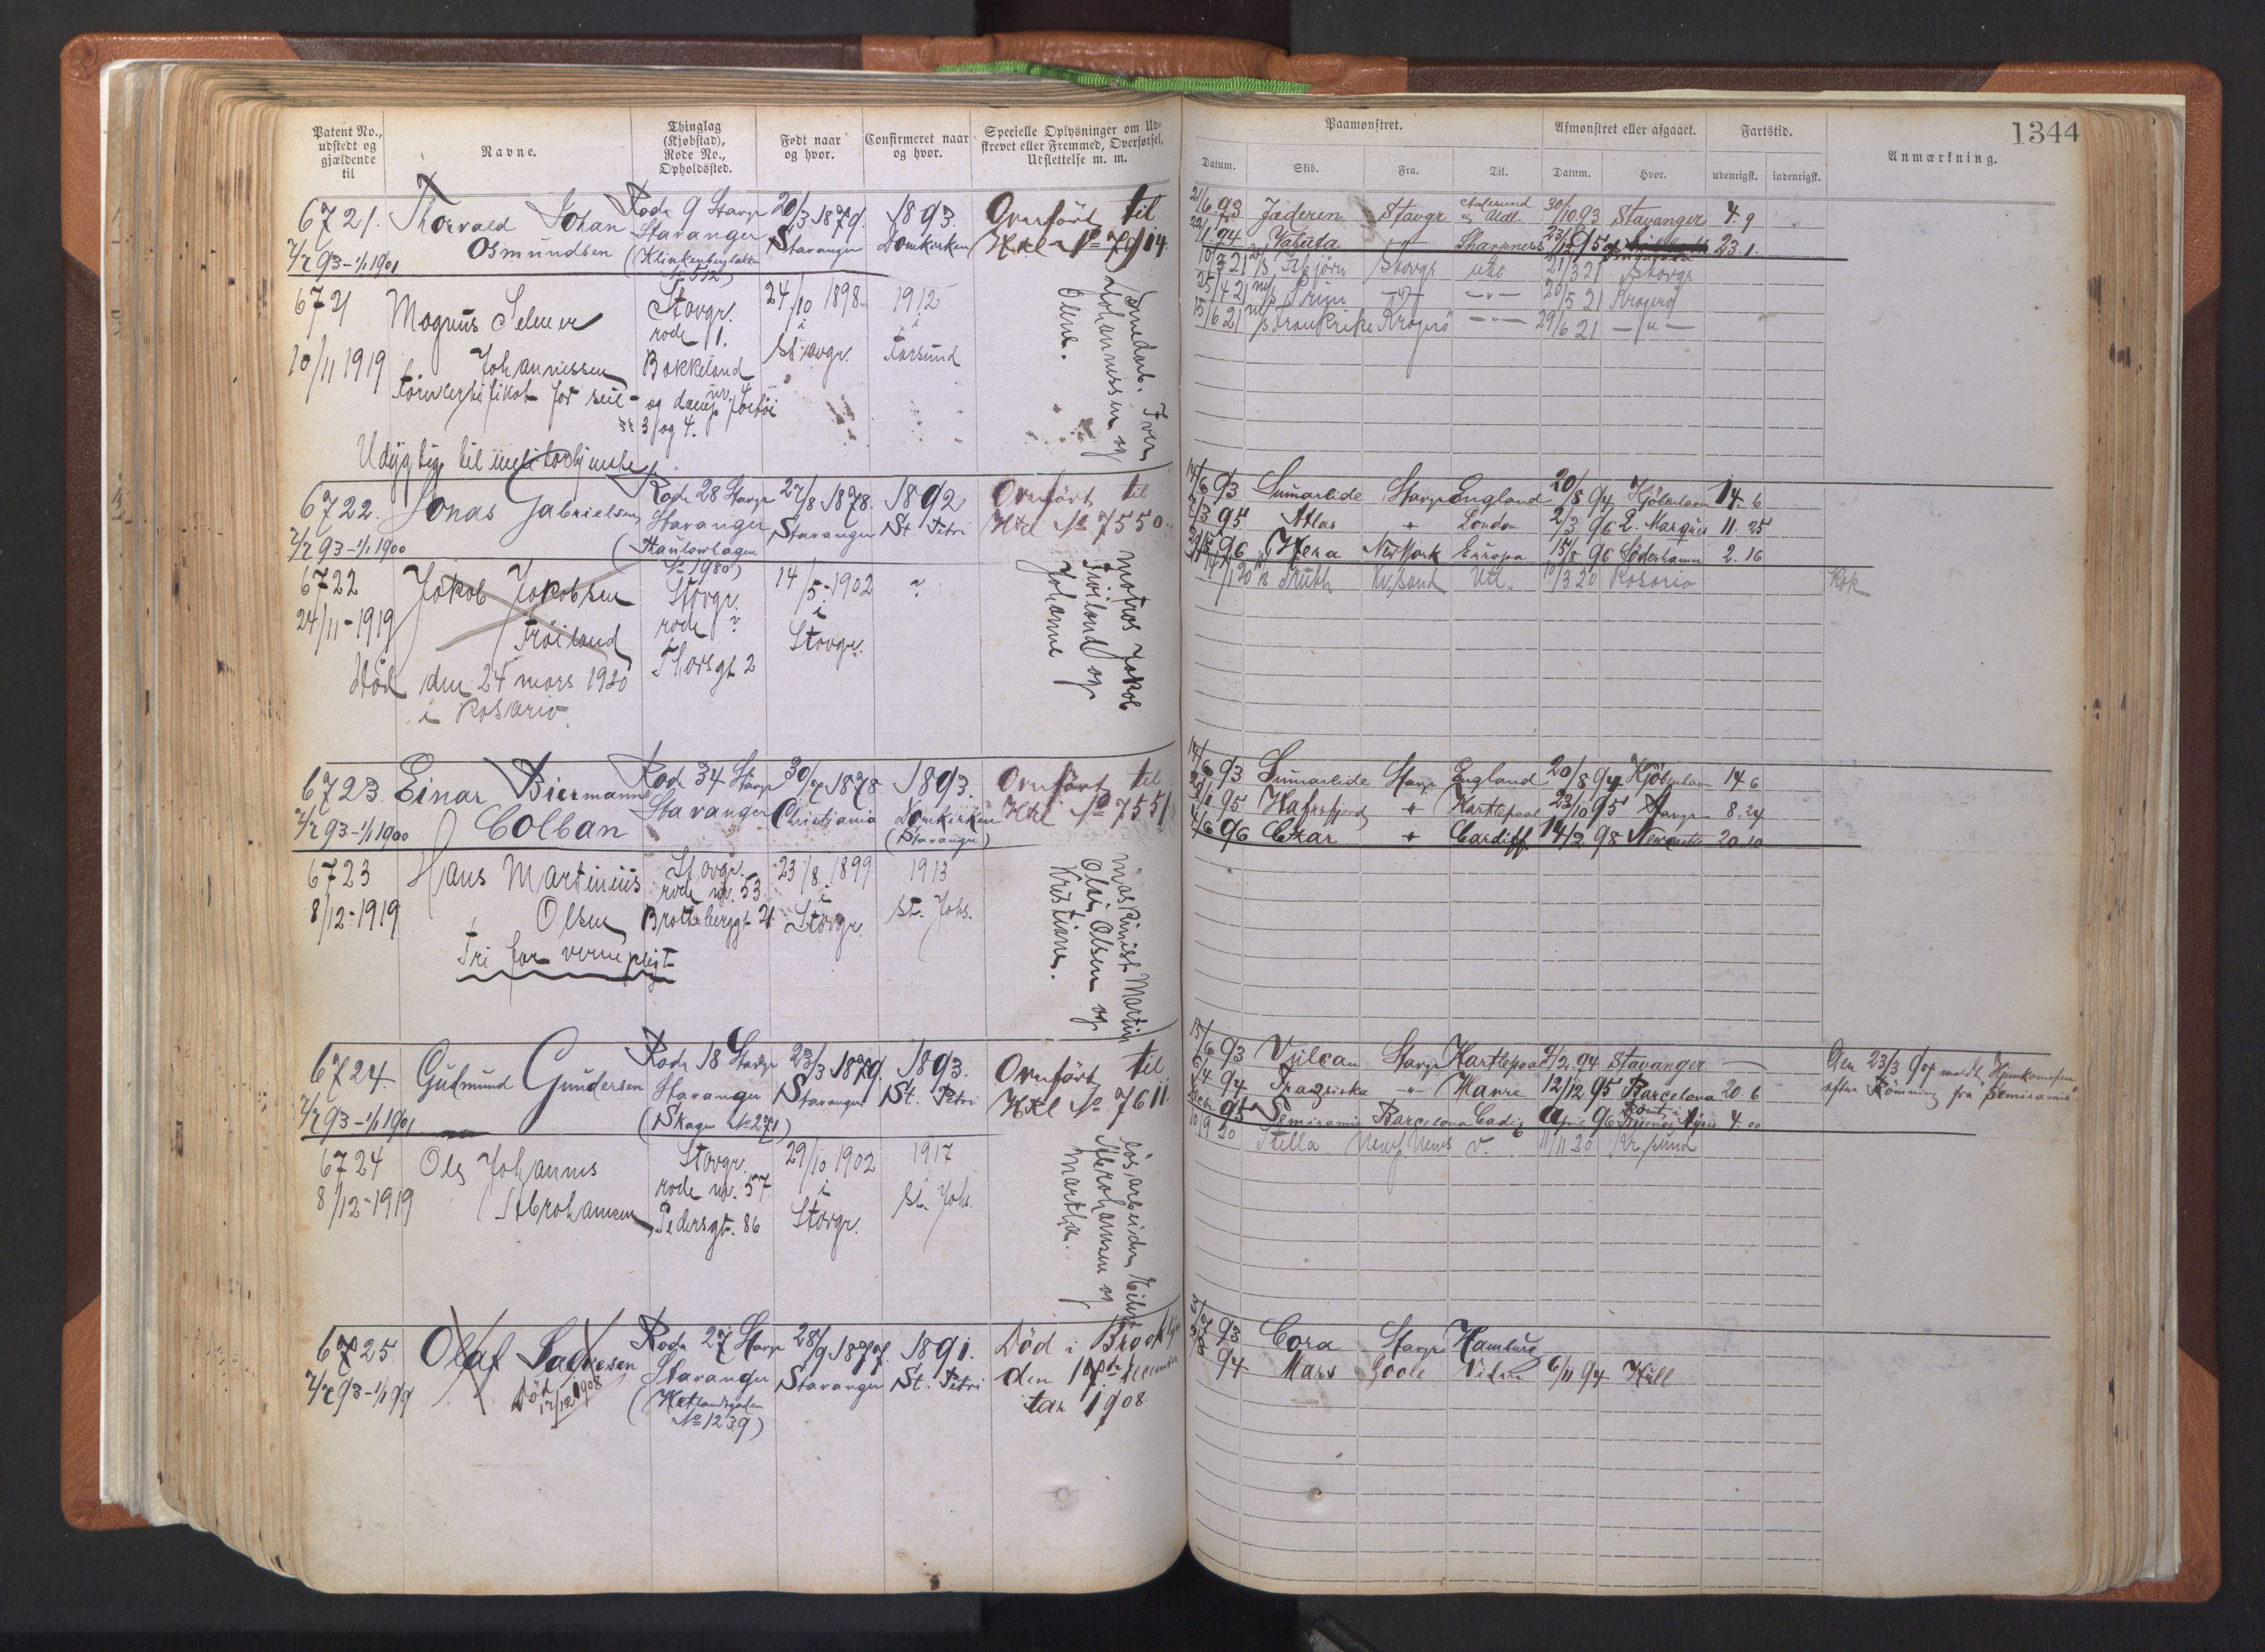 1344
Patent No., udstedt og gjældende til
Navne.
Thinglag (Kjøbstad), Rode No., Opholdssted.
Født naar og hvor.
Confirmeret naar og hvor.
Specielle Oplysninger om Udskrevet eller Fremmed, Overførsel, Udslettelse m. m.
Paamønstret.
Afmønstret eller afgaaet.
Fartstid.
Anmærkning.
Datum. Skib. Fra. Til. Datum. Hvor. udenrigsk. indenrigsk.
6721. Thorvald Johan Rode 9 Stavgr 20/3 1879. 1893. Overført til
Osmundsen Stavanger Stavanger Domkirken Hkl No 7914
7/7 93 - 1/1 1901
21/6 93 Jæderen Stavgr Udl. 30/10 93 Stavanger 4. 9
94 Sharpness 23. 1.
6721 Magnus Selmer Stavgr. 24/10 1898 1912
rode 11. i i
10/11 1919 Johannissen Bokkeland Stavgr. Farsund
3 og 4.
Johannissen og
Oline.
10/3 21 Stavgr utl 21/3 21 Stavgr
25/4 21 Prim 20/5 21 Kragerø
15/6 21 Frankrike Kragerø 29/6 21
6722. Jonas Gabrielsen Rode 28 Stavgr 27/8 1878. 1892 Overført til
Stavanger Stavanger St. Petri Hkl No 7550
7/7 93 - 1/1 1900
No 1980)
14/6 93 Sumarlide Stavgr England 20/8 94 Kjöbenhavn 14. 6
2/3 95 Atlas " London 2/3 96 L. Marques 11. 25
96 Hera New York Europa 15/8 96 Söderhamn 2. 16
6722 Jakob Jakobsen Stavgr. 14/5 - 1902 ?
24/11 - 1919 Frøiland rode ? i
Thorsgt 2 Stavgr.
Død den 25 mars 1920
i Rosario.
matros Jakob
Frøiland og
Johanne
20 Truth Kr.sand Utl. 10/3 20 Rosario Kok
6723 Einar Biermann Rode 34 Stavgr 30/7 1878. 1893. Overført til
Colban Stavanger Christiania Domkirken Hkl No 7551
7/7 93 - 1/1 1900 (Stavanger)
14/6 93 Sumarlide Stavgr England 20/8 94 Kjöbenhavn 14. 6
95 Hafrsfjord " Hartlepool 23/10 95 Stavgr 8. 24
4/6 96 Czar " Cardiff 14/2 98 20. 10
6723 Hans Martinius Stavgr. 23/8 1899 1913
rode nr. 53 i
8/12 - 1919 Olsen Stavgr. St. Johs.
Fri for vernepligt
maskinist Martin
Olai Olsen og
Kristiane.
6724 Gudmund Gundersen Rode 18 Stavgr 23/3 1879. 1893. Overført til
Stavanger Stavanger St. Petri Hkl No 7611
7/7 93 - 1/1 1901 (Skagen No 271)
15/6 93 Vulcan Stavgr Hartlepool 94 Stavanger
94 Franziska " Havre 12/12 95 Barcelona 20. 6
95 Semiramis Barcelona Cadiz April 96 Rømt i Buenos Ayres 4. 00
Den 23/3 meldt Hjemkomsten
efter Rømning fra "Semiramis"
6724 Ole Johannes Stavgr. 29/10 1902 1917
rode nr. 57 i
8/12 - 1919 Abrahamsen Pedersgt. 86 Stavgr. St. Johs.
løsarbeider
Abrahamsen og
Martha.
10/9 20 Stella Newp. News v. 11/11 20 Kr.sund
6725. Olaf Rode 27 Stavgr 28/9 1877. 1891. Død i Brooklyn
Stavanger Stavanger St. Petri den 17de Decem
7/7 93 - 1/1 99 Død 17/12 1908 (Hetlandsgaden ber 1908
No 1239)
5/7 93 Cora Stavgr Hamburg
94 Mars Goole 6/11 94 Hull